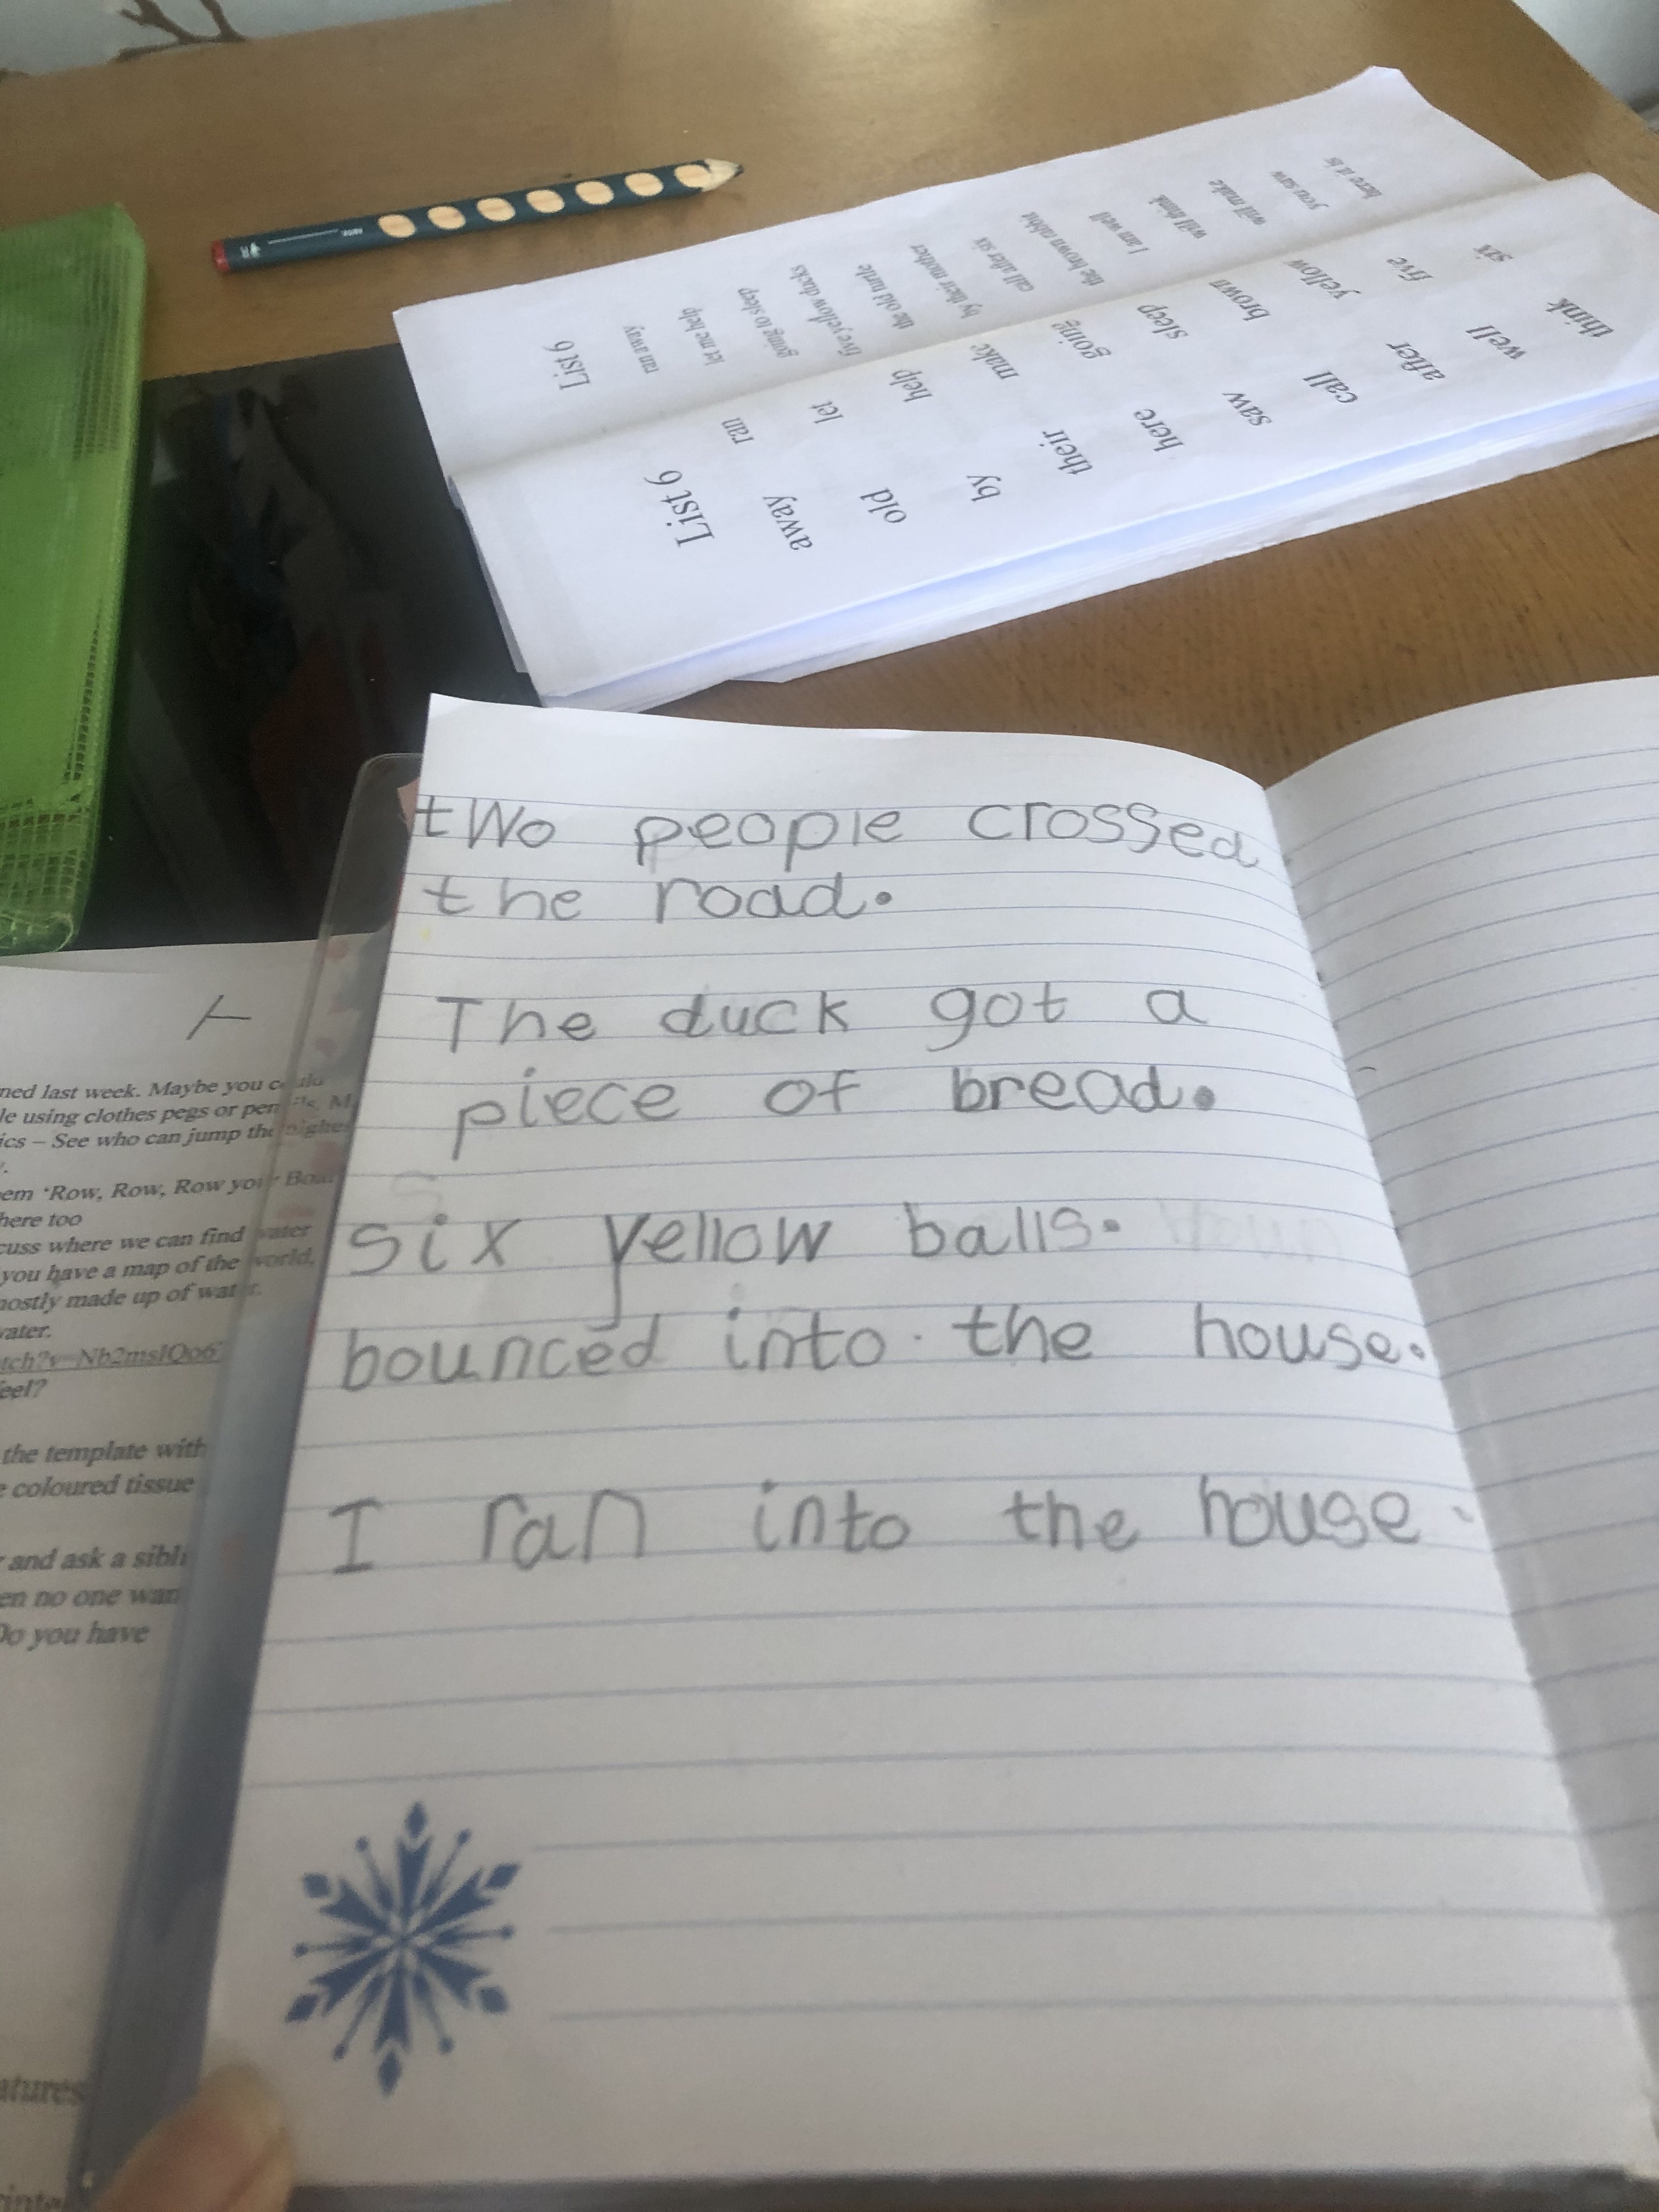 List 6
ran away
let me help
going to sleep
five yellow ducks
the old turtle
by their mother
call after six
the brown rabbit
I am well
will think
will make
you saw
here it is
List 6
ran
away
let
old
help
by
make
their
going
here
sleep
saw
brown
call
yellow
after
five
well
six
think
two people crossed
the road.
The duck got a
piece of bread.
six yellow balls.
bounced into. the house.
I ran into the house.
ned last week. Maybe you could
le using clothes pegs or pen
ics – See who can jump the highes
em 'Row, Row, Row your Boat
here too
cuss where we can find water
you have a map of the world,
nostly made up of water.
vater.
tch?v=Nb2mslQo6
feel?
the template with
e coloured tissue
r and ask a sibli
en no one wan
Do you have
atures